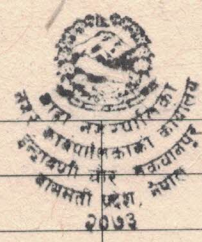 थाहा नगरपालिका
नगर कार्यपालिकाको कार्यालय
मकवानपुर
बागमती प्रदेश, नेपाल
२०७३